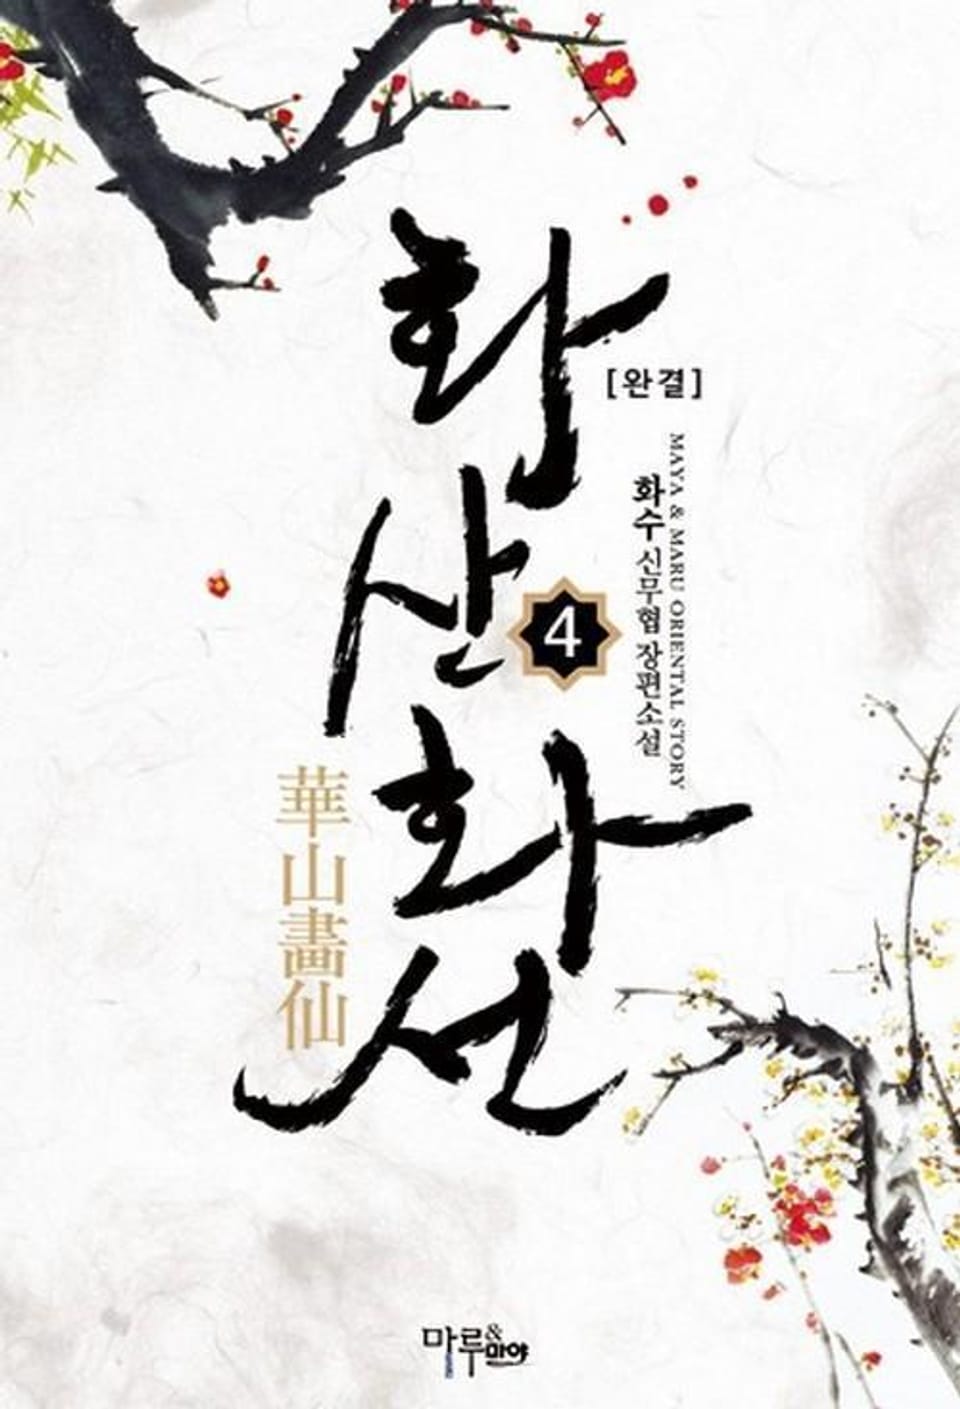 화산화선
[완결]
4
화수 신무협 장편소설
MAYA & MARU ORIENTAL STORY
華山畵仙
마루&마야